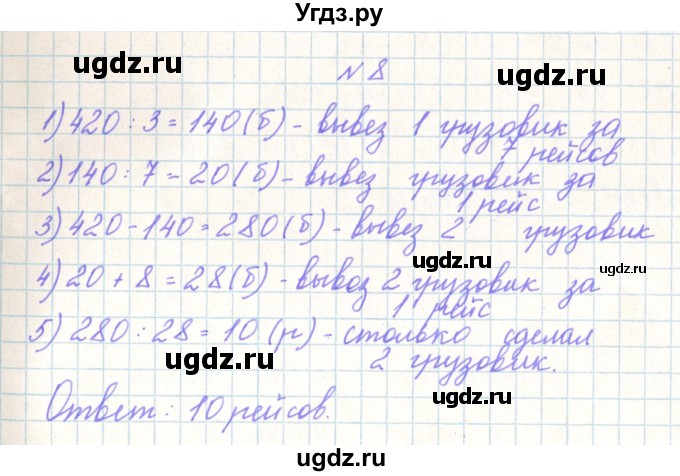 Угдз.ру
ugdz.ru
№8
ugdz.ru
1) 420 : 3 = 140 (б) - вывез 1 грузовик за
7 рейсов
2) 140 : 7 = 20 (б) - вывез грузовик за
1 рейс
3) 420 - 140 = 280 (б) - вывез 2 грузовик
ugdz.ru
ugdz.ru
4) 20 + 8 = 28 (б) - вывоз 2 грузовик за
1 рейс
5) 280 : 28 = 10 (р) - столько сделал
ugdz.ru
2 грузовик.
Ответ: 10 рейсов.
ugdz.ru
ugdz.ru